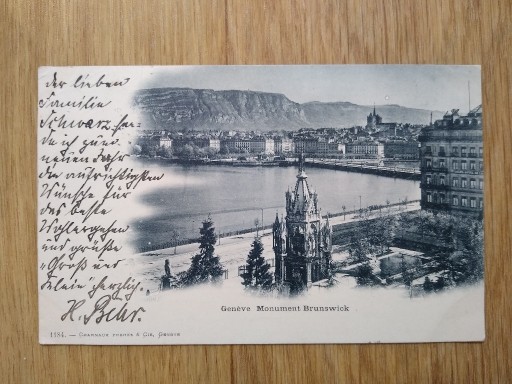 der lieben
Familie
Schwarz sen-
de ich zum
neuen Jahr
die aufrichtigsten
Wünsche für
das beste
Wohlergehen
und grüße
"Groß und
klein" herzlich.
H. Behr.
Genève Monument Brunswick
1184. — Charnaux frères & Cie, Genève